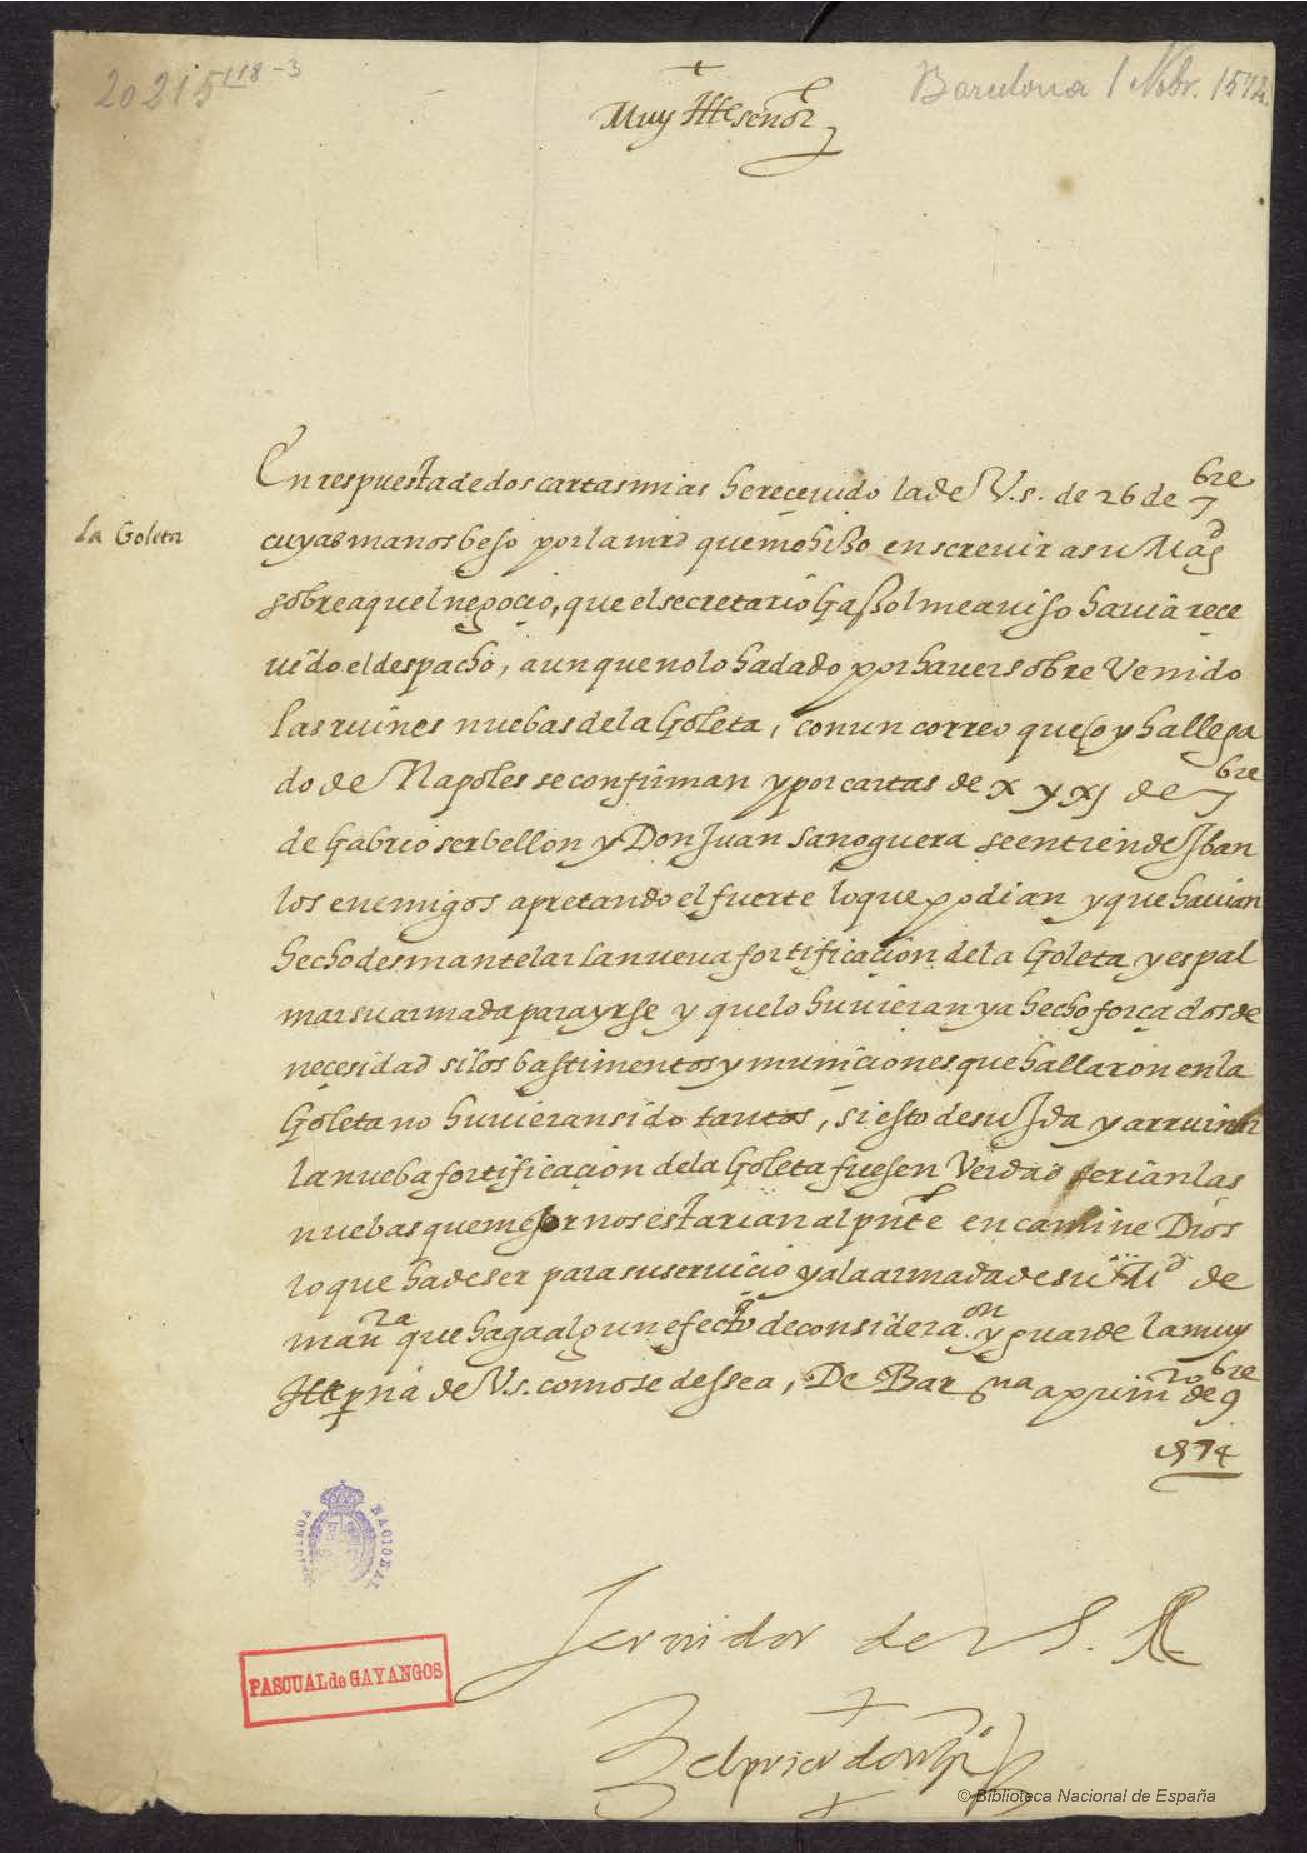 20215 118-3
Barcelona 1 Nobr. 1574.
+
Muy Ille señor
En respuesta de dos cartas mias he recevido la de V.s. de 26 de 7bre
la Goleta
cuyas manos beso por la mrd que me hizo en screvir a su Magd
sobre aquel negocio, que el secretario Gassol me aviso havia rece
vido el despacho, aunque no lo ha dado por haver sobre venido
las ruines nuebas de la Goleta, con un correo que oy ha llega
do de Napoles se confirman y por cartas de x y xj de 7bre
de Gabrio serbellon y Don Juan Sanoguera se entiende Iban
los enemigos apretando el fuerte lo que podian y que havian
hecho desmantelar la nueva fortificacion de la Goleta y espal
mar su armada para yrse y que lo huvieran ya hecho forçados de
necesidad si los bastimentos y municiones que hallaron en la
Goleta no huvieran sido tantos, si esto de su Ida y arruinar
la nueba fortificacion de la Goleta fuesen Verdad serian las
nuebas que mejor nos estarian al pnte encamine Dios
lo que ha de ser para su servicio y a la armada de su Md de
manra que haga algun efecto de consideraon. y guarde la muy
Ille pna de V.s. como se dessea, De Barna a primro de 9bre
1574
BIBLIOTECA NACIONAL
PASCUAL de GAYANGOS
servidor de V. S.
el prior don
© Biblioteca Nacional de España